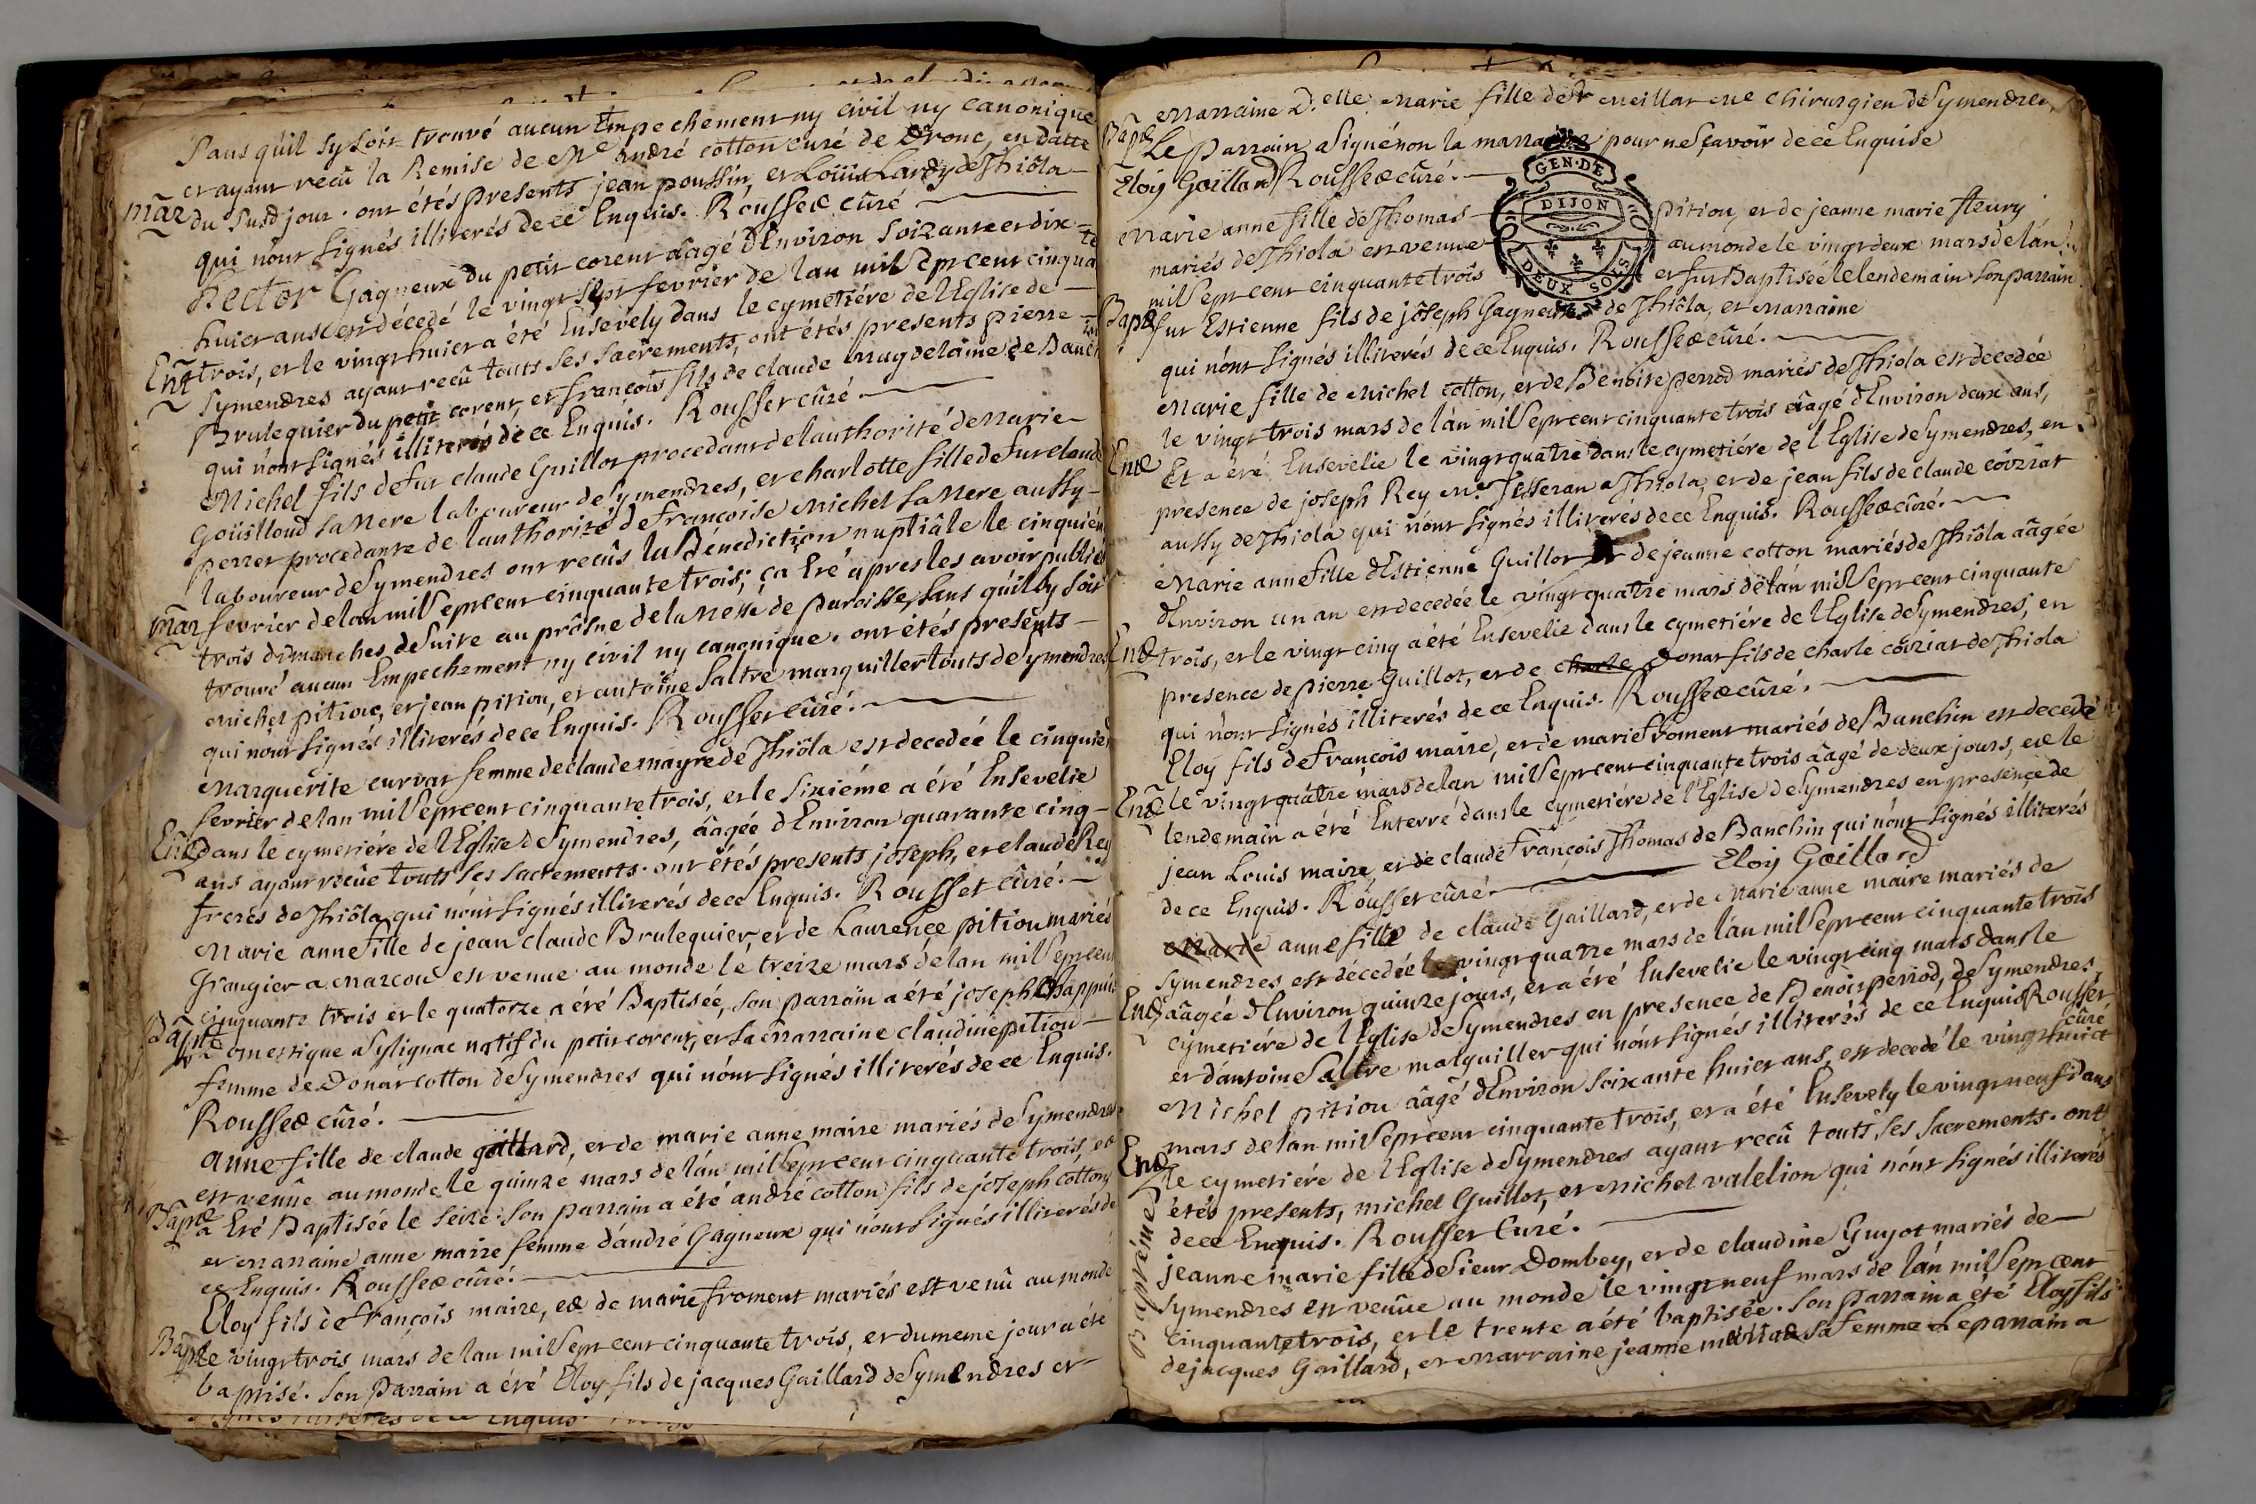 Sans qu'il sy soit trouvé aucun Empechement ny civil ny canonique
et ayant recû la Remise de Me André cotton curé de Drone, en datte
mar du Susd jour. ont étés presents jean poussin, et Loüis Landy de Thiôla
qui n'ont signés illiterés de ce Enquis. Rousset cûré
Hector Gagneux du petit corent âagé d'Environ soixante et dix
huict ans est décedé le vingt sept fevrier de lan mil sept cent cinquante
Ent trois, et le vingt huict a été Ensevely dans le cymetiére de l'Eglise de
Symendres ayant recû touts ses sacrements, ont étés presents pierre
Brulequier du petit corent, et françois fils de claude mugdelaine de Banchin
qui n'ont signés illiterés de ce Enquis. Rousset cûré
Michel fils de fut claude Guillot procedant de lauthorité de Marie
Goüilloud sa Mere laboureur de Symendres, et charlotte fille de fut claude
perret procedante de lauthorité de Françoise Michel sa Mere aussy
laboureur de Symendres ont recûs la Bénediction nuptiâle le cinquiéme
mar fevrier de lan mil sept cent cinquante trois; ça Eté apres les avoir publiés
trois dimanches de suite au prône de la Messe de paroisse, sans qu'il sy soit
trouvé aucun Empechement ny civil ny canonique. ont étés presents
Michel pitiou, et jean pitiou, et antoine Saltre marguiller touts de Symendres
qui n'ont signés illiterés de ce Enquis. Rousset cûré.
Marguerite curvat femme de claude mayre de Thiôla est decedée le cinquiéme
fevrier de lan mil sept cent cinquante trois, et le sixiéme a été Ensevelie
Ent dans le cymetiére de l'Eglise de Symendres, âagée d'Environ quarante cinq
ans ayant recûe touts ses sacrements. ont étés presents joseph, et claude Rey
freres de Thiôla qui n'ont signés illiterés de ce Enquis. Rousset cûré.
Marie anne fille de jean claude Brulequier, et de Laurence pitiou mariés
Grangier a Marcou est venue au monde le treize mars de lan mil sept cent
cinquante trois et le quatorze a été Baptisée, son parrain a été joseph Chappuis
Bapt domestique a Sylignac natif du petit corent, et sa Marraine claudine pitiou
femme de Donat cotton de Symendres qui n'ont signés illiterés de ce Enquis.
Rousset cûré.
anne fille de claude gaillard, et de marie anne maire mariés de Symendres
est venûe au monde le quinze mars de lán mil sept cent cinquante trois, et
Bapt a Eté Baptisée le seize. son parrain a été andré cotton fils de joseph cotton
et Marraine anne maire femme d'andré Gagneux qui n'ont signés illiterés de
ce Enquis. Rousset cûré.
Eloy fils de François maire, et de marie froment mariés est venû au monde
Bapt le vingt trois mars de lan mil sept cent cinquante trois, et du meme jour a été
baptisé. son Parrain a été Eloy fils de jacques Gaillard de Symendres et
Marraine D.elle Marie fille de Sr Meillat Me chirurgien de Symendres
Bapt Le parrain a signé non la marraine pour ne sçavoir de ce Enquise
Eloy Gaillard Rousset cûré.
GEN. DE
DIJON
DEUX SOLS
Marie anne fille de Thomas pitiou, et de jeanne marie fleury
mariés de Thiola est venue au monde le vingt deux mars de lán
mil sept cent cinquante trois et fut Baptisée le lendemain son parrain
Bapt fut Estienne fils de jôseph Gagneux de Thiôla, et Marraine
qui n'ont signés illiterés de ce Enquis. Rousset cûré.
Marie fille de Michel cotton, et de Benoite perrod mariés de Thiola est decedée
le vingt trois mars de lán mil sept cent cinquante trois âagé d'Environ deux ans,
Ent Et a eté Ensevelie le vingt quatre dans le cymetiére de l'Eglise de Symendres, en
presence de joseph Rey Me Tisseran a Thiola, et de jean fils de claude côvziat
aussy de Thiola qui n'ont signés illiterés de ce Enquis. Rousset cûré.
Marie anne fille d'Estienne Guillot et de jeanne cotton mariés de Thiôla âagée
d'Environ un an est decedée le vingt quatre mars de lán mil sept cent cinquante
Ent trois, et le vingt cinq a été Ensevelie dans le cymetiére de l'Eglise de Symendres, en
presence de pierre Guillot, et de charle Donat fils de charle côvziat de Thiola
qui n'ont signés illiterés de ce Enquis. Rousset cûré.
Eloy fils de François maire, et de marie froment mariés de Banchin est decedé
Ent le vingt quatre mars de lan mil sept cent cinquante trois âagé de deux jours, et le
lendemain a été Enterré dans le cymetiére de l'Eglise de Symendres en presence de
jean Louis maire, et de claude François Thomas de Banchin qui n'ont signés illiterés
de ce Enquis. Rousset cûré. Eloy Gaillard
Marie anne fille de claude Gaillard, et de Marie anne maire mariés de
Symendres est décedée le vingt quatre mars de lán mil sept cent cinquante trois
Ent âagée d'Environ quinze jours, et a été Ensevelie le vingt cinq mars dans le
cymetiére de l'Eglise de Symendres en presence de Benoit perrod, de Symendres,
et d'antoine Saltre marguiller qui n'ont signés illiterés de ce Enquis Rousset
cûré
Michel pitiou âagé d'Environ soixante huict ans, est decedé le vingt huict
mars de lan mil sept cent cinquante trois, et a été Ensevely le vingt neuf dans
Ent le cymetiére de l'Eglise de Symendres ayant recû touts ses sacrements. ont
étés presents, michel Guillot, et Michel valelion qui n'ont signés illiterés
de ce Enquis. Rousset Curé.
Baptéme
jeanne marie fille de Sieur Dombey, et de claudine Guyot mariés de
Symendres est venûe au monde le vingt neuf mars de lán mil sept cent
Cinquante trois, et le trente a été baptisée. son Parrain a été Eloy fils
de jacques Gaillard, et Marraine jeanne meillat sa femme Le parrain a